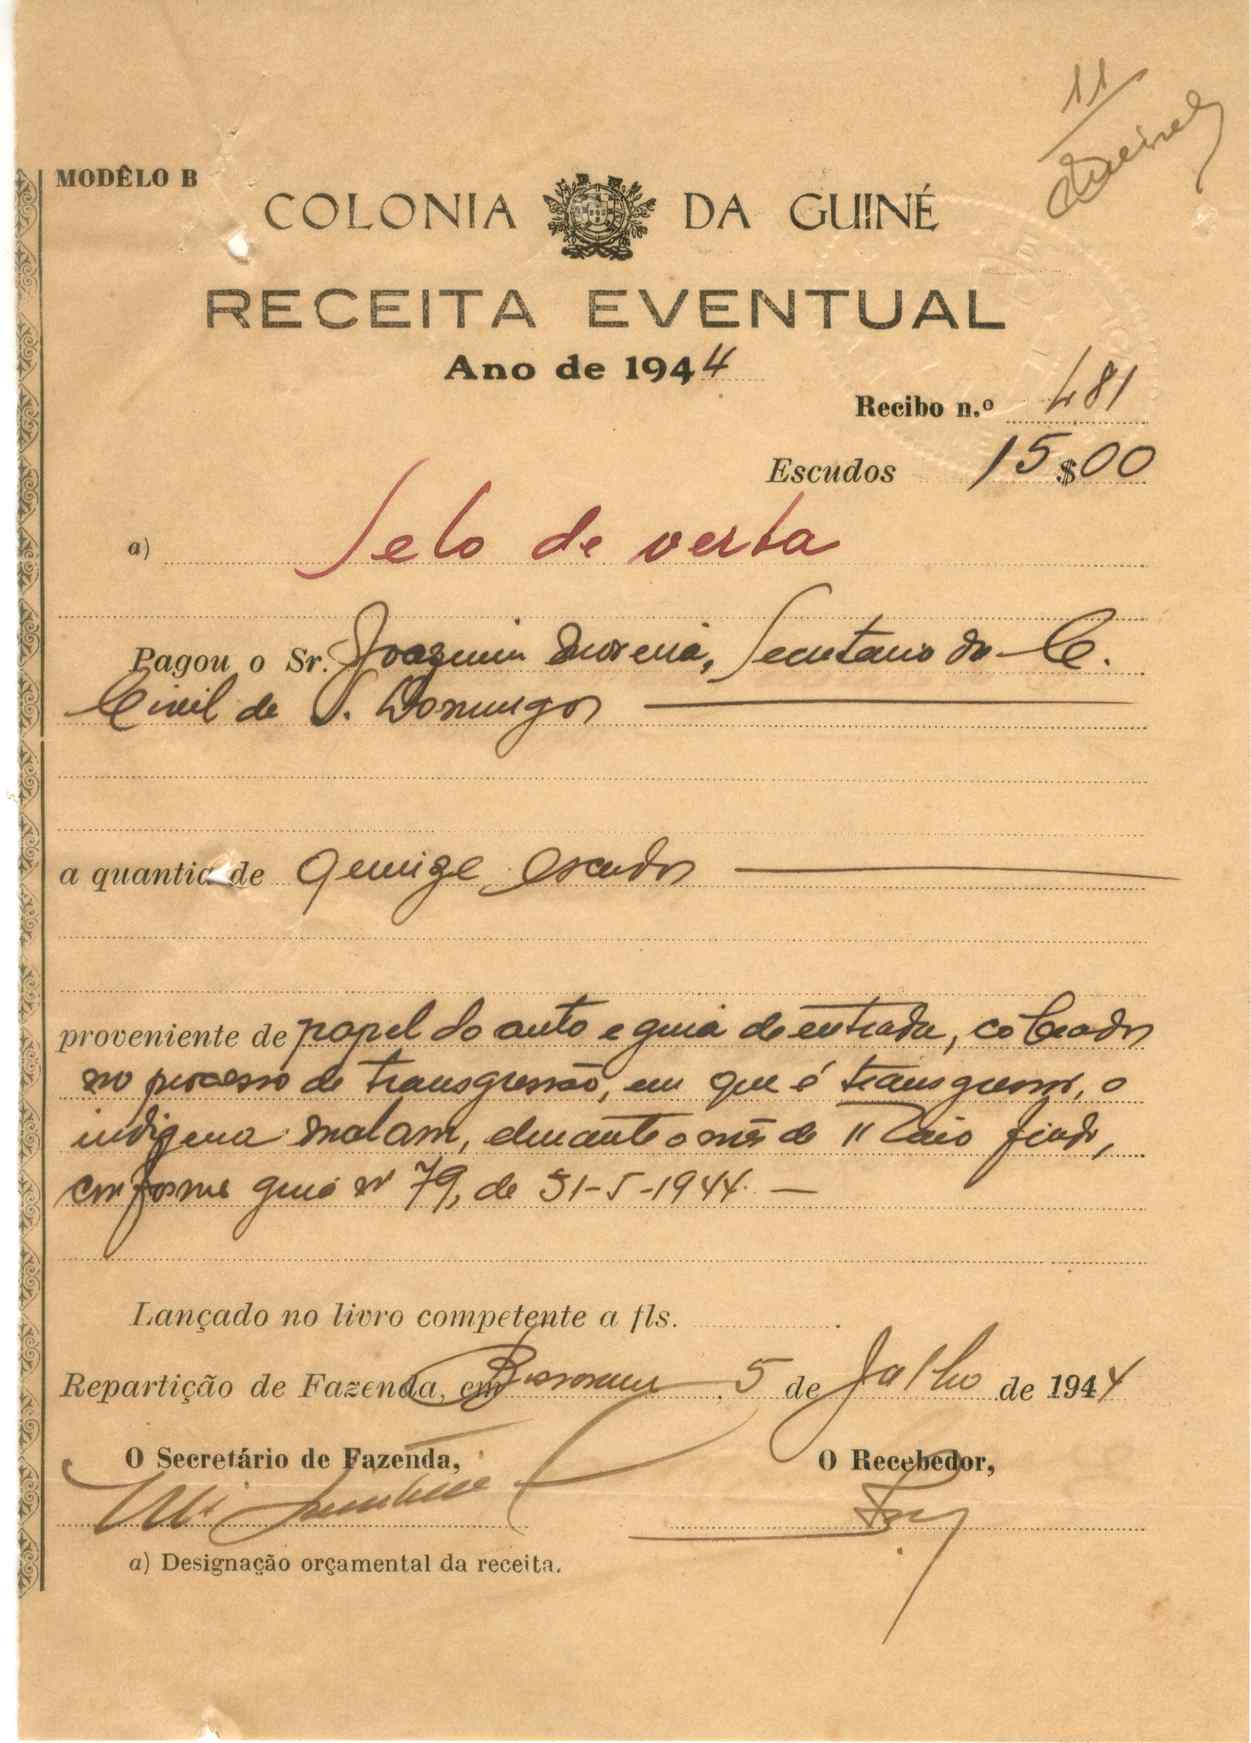 11
MODÊLO B
COLONIA DA GUINÉ
RECEITA EVENTUAL
Ano de 1944
Recibo n.º 481
Escudos 15$00
a) Selo de verba
Pagou o Sr. Joaquim Moreira, Secretario da C.
Civil de S. Domingos
a quantia de quinze escudos
proveniente de papel do auto e guia de entrada, cobrados
no processo de transgressão, em que é transgressor, o
indigena Malam, durante o mês de Maio findo,
conforme guia nº 79, de 31-5-1944.
Lançado no livro competente a fls.
Repartição de Fazenda, em 5 de Julho de 1944
O Secretário de Fazenda,
O Recebedor,
a) Designação orçamental da receita.